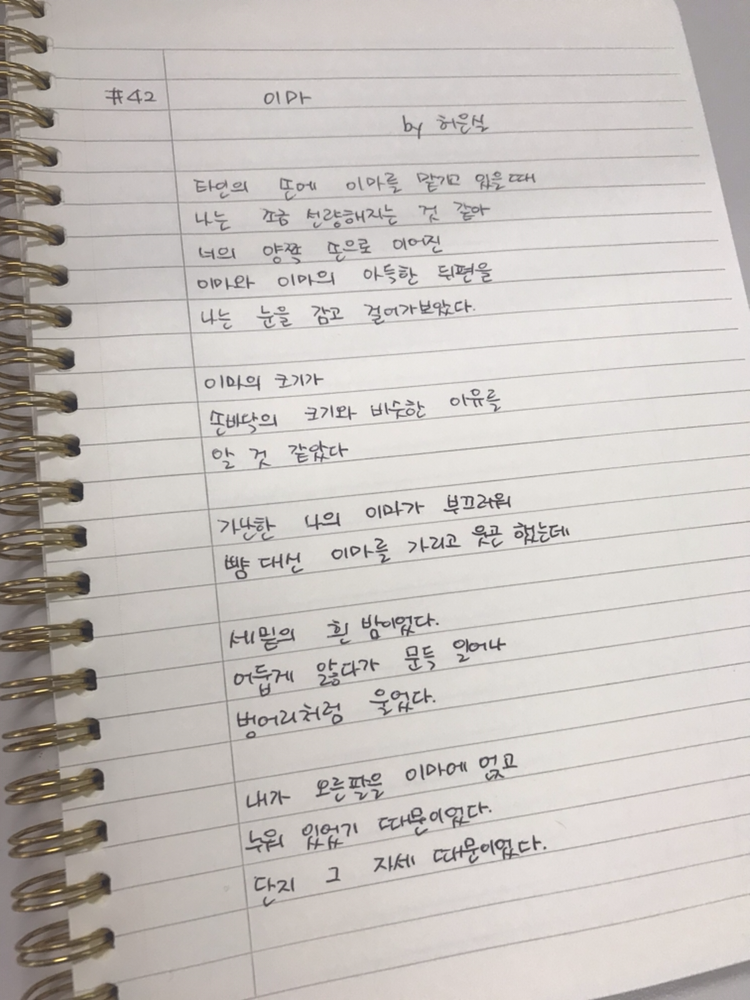 #42 이마
by 허은실
타인의 손에 이마를 맡기고 있을 때
나는 조금 선량해지는 것 같아
너의 양쪽 손으로 이어진
이마와 이마의 아득한 뒤편을
나는 눈을 감고 걸어가보았다.
이마의 크기가
손바닥의 크기와 비슷한 이유를
알 것 같았다
가난한 나의 이마가 부끄러워
뺨 대신 이마를 가리고 웃곤 했는데
세밑의 흰 밤이었다.
어둡게 앓다가 문득 일어나
벙어리처럼 울었다.
내가 오른팔을 이마에 얹고
누워 있었기 때문이었다.
단지 그 자세 때문이었다.